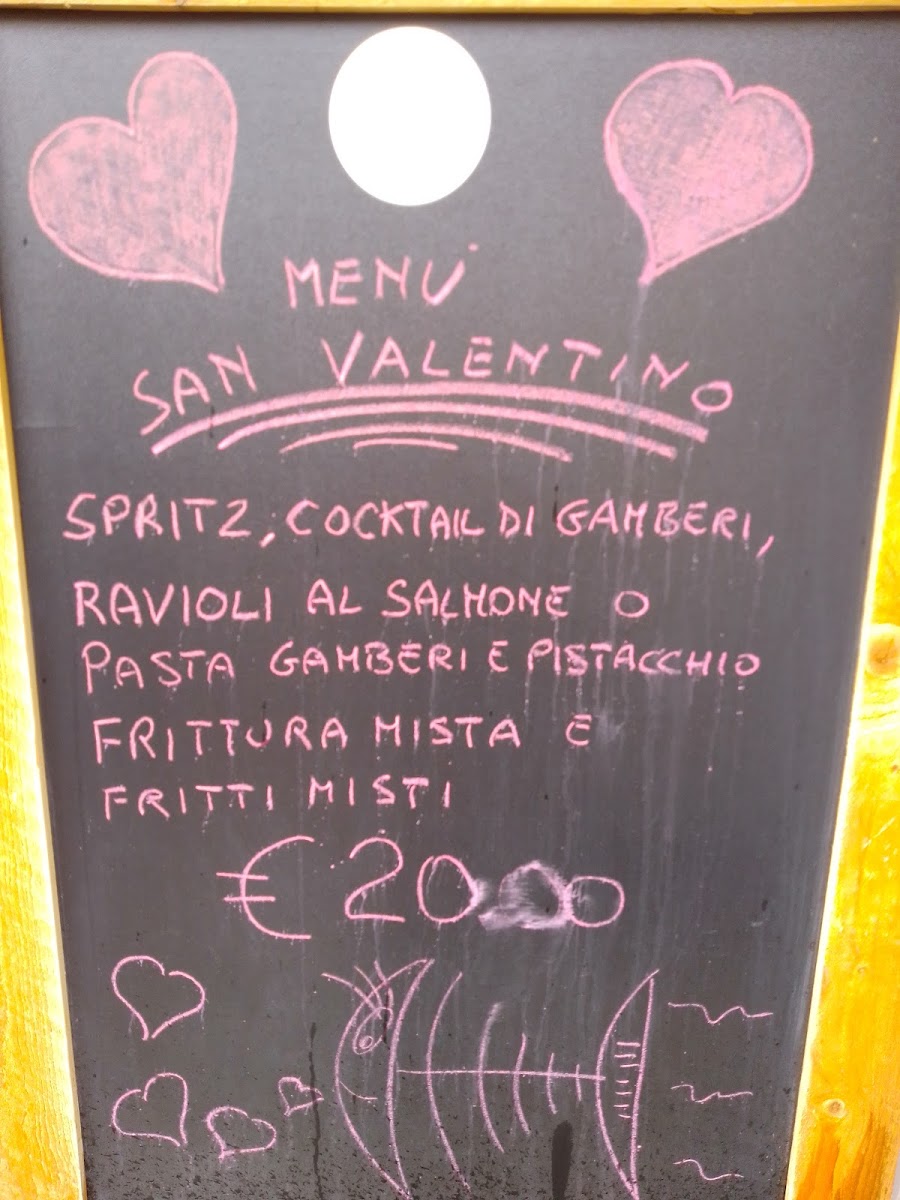 MENÙ
SAN VALENTINO
SPRITZ, COCKTAIL DI GAMBERI,
RAVIOLI AL SALMONE O
PASTA GAMBERI E PISTACCHIO
FRITTURA MISTA E
FRITTI MISTI
€ 20.00